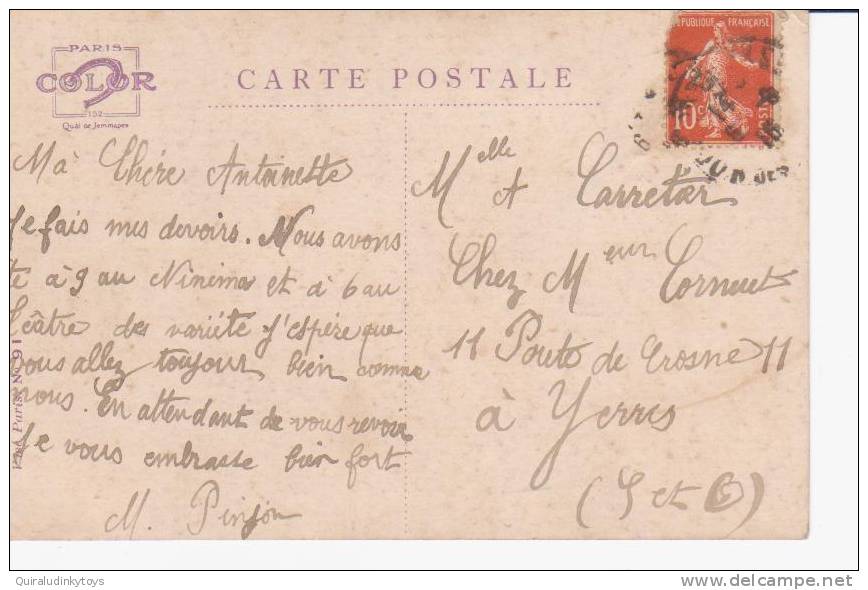 PARIS
COLOR
152
Quai de Jemmapes
CARTE POSTALE
REPUBLIQUE FRANÇAISE
10c
Ma Chére Antoinette
Je fais mes devoirs. Nous avons
té à 9 au Ninéma et à 6 au
Téâtre des variéte J'espère que
vous allez toujour bien comme
nous. En attendant de vous revoir
Je vous embrasse bien fort
M. Pinson
Paris, No 91
Melle A Carretar
Chez Meur Cornuet
11 Route de Crosne 11
à Yerres
(S et O)
Quiraludinkytoys
delcampe.net